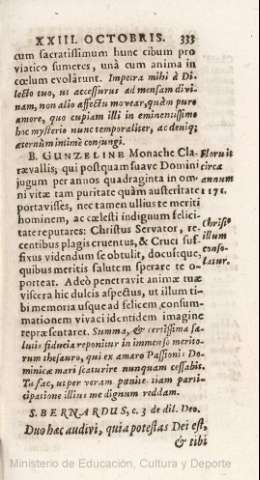 XXIII OCTOBRIS. 333
cum sacratissimum hunc cibum pro
viatico sumeres, unà cum anima in
cœlum evolârunt. Impetra mihi à Di-
lecto tuo, ut accessurus ad mensam divi-
nam, non alio affectu movear, quàm puro
amore, quo cupiam illi in eminentissimo
hoc mysterio nunc temporaliter, ac deniq;
æternùm intimè conjungi.
B. GUNZELINE Monache Cla-
rævallis, qui postquam suave Domini
jugum per annos quadraginta in om-
ni vitæ tam puritate quàm austeritate
portavisses, nec tamen ullius te meriti
hominem, ac cœlesti indignum felici-
tate reputares: Christus Servator, re-
centibus plagis cruentus, & Cruci suf-
fixus videndum se obtulit, docuitque,
quibus meritis salutem sperare te o-
porteat. Adeò penetravit animæ tuæ
viscera hic dulcis aspectus, ut illum ti-
bi memoria usque ad felicem consum-
mationem vivaci identidem imagine
repræsentaret. Summa, & certissima sa-
lutis fiducia reponitur in immenso merito-
rum thesauro, qui ex amaro Passionis Do-
minicæ mari scaturire nunquam cessabit.
Tu fac, ut per veram pœnitentiam parti-
cipatione illius me dignum reddam.
S. BERNARDUS, c. 3 de dil. Deo.
Duo hæc audivi, quia potestas Dei est,
& tibi
Floruit
circa
annum
1171.
Christus
illum
conso-
latur.
Ministerio de Educación, Cultura y Deporte